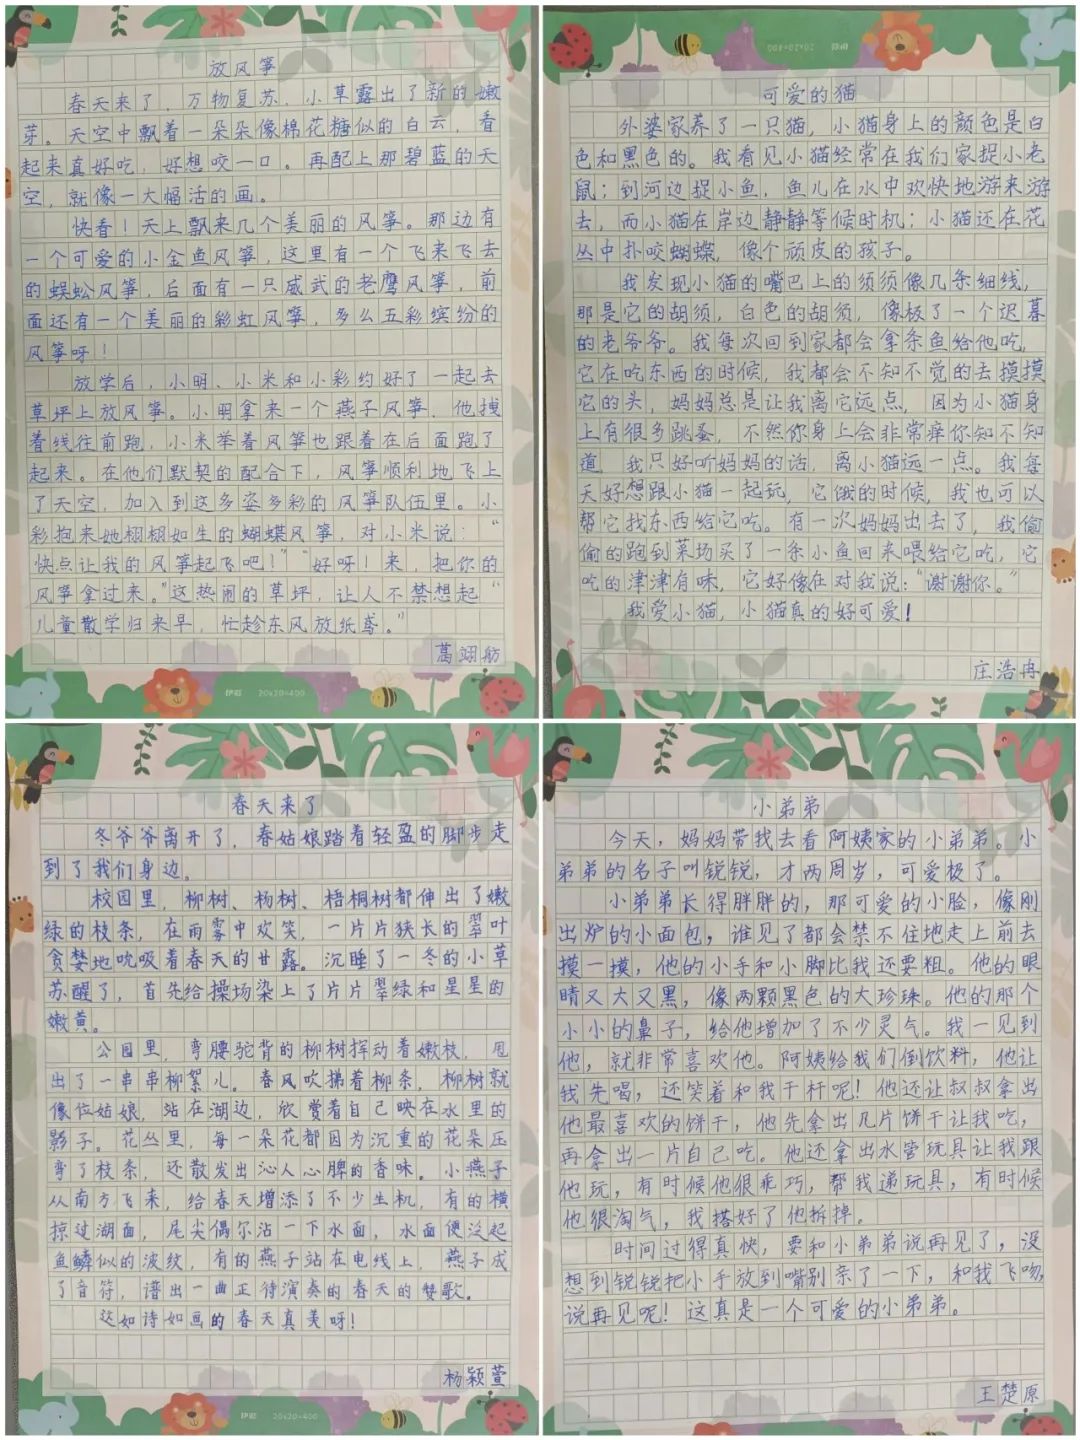 放风筝
春天来了，万物复苏，小草露出了新的嫩
芽。天空中飘着一朵朵像棉花糖似的白云，看
起来真好吃，好想咬一口。再配上那碧蓝的天
空，就像一大幅活的画。
快看！天上飘来几个美丽的风筝。那边有
一个可爱的小金鱼风筝，这里有一个飞来飞去
的蜈蚣风筝，后面有一只威武的老鹰风筝，前
面还有一个美丽的彩虹风筝，多么五彩缤纷的
风筝呀！
放学后，小明、小米和小彩约好了一起去
草坪上放风筝。小明拿来一个燕子风筝，他拽
着线往前跑，小米举着风筝也跟着在后面跑了
起来。在他们默契的配合下，风筝顺利地飞上
了天空，加入到这多姿多彩的风筝队伍里。小
彩抱来她栩栩如生的蝴蝶风筝，对小米说：“
快点让我的风筝起飞吧！”“好呀！来，把你的
风筝拿过来。”这热闹的草坪，让人不禁想起“
儿童散学归来早，忙趁东风放纸鸢。”
葛翊舫
伊彩 20x20=400
20x20=400 伊彩
可爱的猫
外婆家养了一只猫，小猫身上的颜色是白
色和黑色的。我看见小猫经常在我们家捉小老
鼠；到河边捉小鱼，鱼儿在水中欢快地游来游
去，而小猫在岸边静静等候时机；小猫还在花
丛中扑咬蝴蝶，像个顽皮的孩子。
我发现小猫的嘴巴上的须须像几条细线，
那是它的胡须，白色的胡须，像极了一个迟暮
的老爷爷。我每次回到家都会拿条鱼给他吃，
它在吃东西的时候，我都会不知不觉的去摸摸
它的头，妈妈总是让我离它远点，因为小猫身
上有很多跳蚤，不然你身上会非常痒你知不知
道 我只好听妈妈的话，离小猫远一点。我每
天好想跟小猫一起玩，它饿的时候，我也可以
帮它找东西给它吃。有一次妈妈出去了，我偷
偷的跑到菜场买了一条小鱼回来喂给它吃，它
吃的津津有味，它好像在对我说：“谢谢你。”
我爱小猫，小猫真的好可爱！
庄浩冉
春天来了
冬爷爷离开了，春姑娘踏着轻盈的脚步走
到了我们身边。
校园里，柳树、杨树、梧桐树都伸出了嫩
绿的枝条，在雨雾中欢笑，一片片狭长的翠叶
贪婪地吮吸着春天的甘露。沉睡了一冬的小草
苏醒了，首先给操场染上了片片翠绿和星星的
嫩黄。
公园里，弯腰驼背的柳树挥动着嫩枝，甩
出了一串串柳絮儿。春风吹拂着柳条，柳树就
像位姑娘，站在湖边，欣赏着自己映在水里的
影子。花丛里，每一朵花都因为沉重的花朵压
弯了枝条，还散发出沁人心脾的香味。小燕子
从南方飞来，给春天增添了不少生机，有的横
掠过湖面，尾尖偶尔沾一下水面，水面便泛起
鱼鳞似的波纹，有的燕子站在电线上，燕子成
了音符，谱出一曲正待演奏的春天的赞歌。
这如诗如画的春天真美呀！
杨颖萱
伊彩 20x20=400
小弟弟
今天，妈妈带我去看阿姨家的小弟弟。小
弟弟的名子叫锐锐，才两周岁，可爱极了。
小弟弟长得胖胖的，那可爱的小脸，像刚
出炉的小面包，谁见了都会禁不住地走上前去
摸一摸，他的小手和小脚比我还要粗。他的眼
睛又大又黑，像两颗黑色的大珍珠。他的那个
小小的鼻子，给他增加了不少灵气。我一见到
他，就非常喜欢他。阿姨给我们倒饮料，他让
我先喝，还笑着和我干杯呢！他还让叔叔拿出
他最喜欢的饼干，他先拿出几片饼干让我吃，
再拿出一片自己吃。他还拿出水管玩具让我跟
他玩，有时候他很乖巧，帮我递玩具，有时候
他很淘气，我搭好了他拆掉。
时间过得真快，要和小弟弟说再见了，没
想到锐锐把小手放到嘴别亲了一下，和我飞吻，
说再见呢！这真是一个可爱的小弟弟。
王楚原